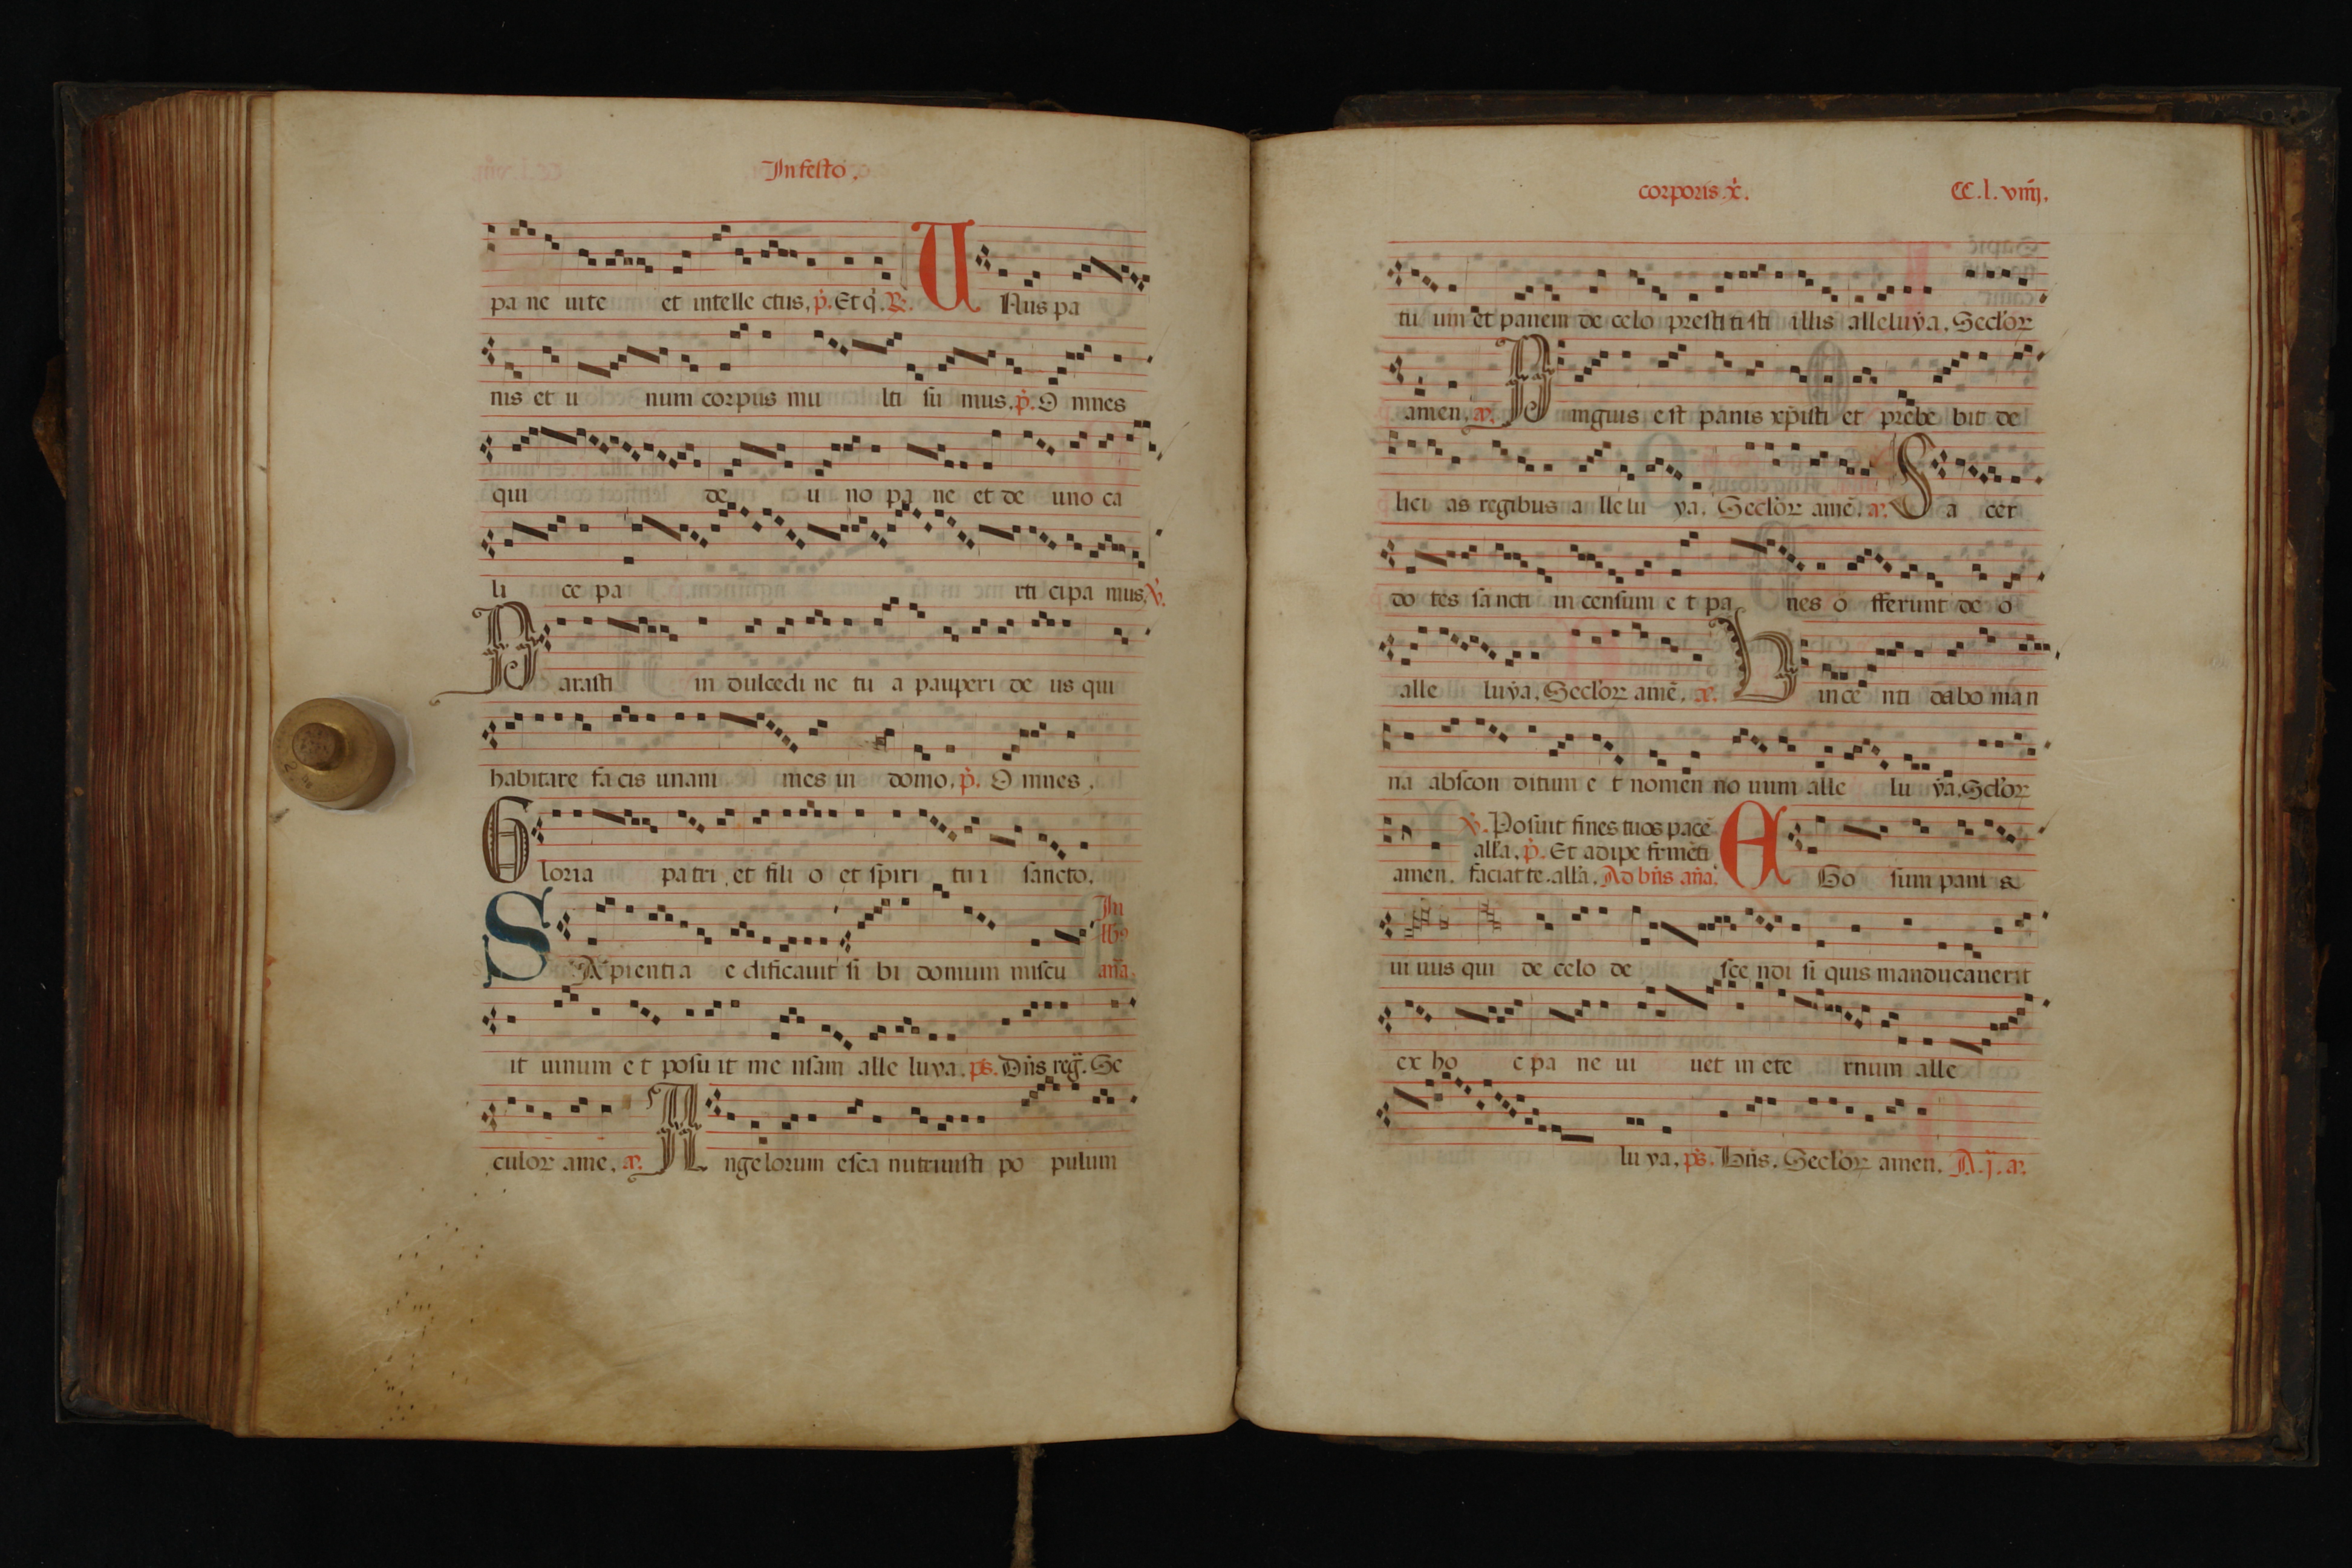 In festo.
pa ne uite et intelle ctus, p̓. Et q̓. R̓. U Nus pa
nis et u num corpus mu lti su mus. p̓. O mnes
qui de u no pa ne et de uno ca
li ce pa rti cipa mus. v̓.
P arasti in dulcedi ne tu a pauperi de us qui
habitare fa cis unani mes in domo. p̓. O mnes.
G loria pa tri et fili o et spiri tu i sancto.
In
S Apienti a e dificauit si bi domum miscu aña.
it uinum e t posu it me nsam alle luya. ps. Dñs reg̃. Se
culor ame. a. A ngelorum esca nutriuisti po pulum
corporis. x̓. CC. l. viiij.
tu um et panem de celo presti ti sti illis alleluẏa. Seclor
amen. a. P inguis est panis xp̄isti et prebe bit de
lici as regibus a lle lu ya. Seclor amē. a. S a cer
do tes sancti in censum e t pa nes o fferunt de o
alle luẏa. Seclor amē. a. U ince nti dabo man
na abscon ditum e t nomen no uum alle lu ẏa. Sclor
v̓. Posuit fines tuos pacē
alla. p̓. Et adipe frumēti
amen. faciat te. alla. Ad bñs aña. E Go sum pani s
ui uus qui de celo de sce ndi si quis manducauerit
ex ho c pa ne ui uet in ete rnum alle
lu ya. ps. Bñs. Seclor amen. A. ij. a.